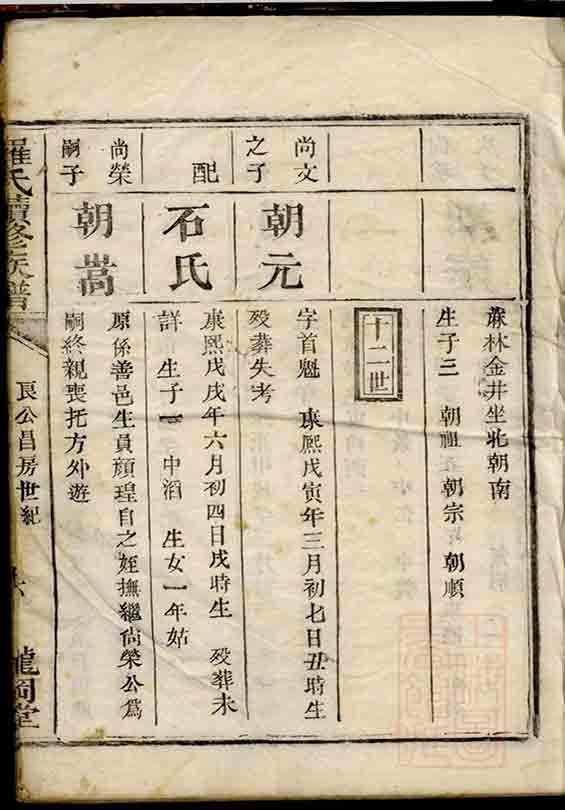 蔴林金井坐北朝南
生子三 朝祖 朝宗 朝順
十二世
尚文之子
朝元
字首魁 康熙戊寅年三月初七日丑時生
歿葬失考
配
石氏
康熙戊戌年六月初四日戌時生 歿葬未
詳 生子一 中滔 生女一年姑
尚榮嗣子
朝嵩
原係善邑生員顏瑆自之姪撫繼尚榮公爲
嗣終親喪托方外遊
羅氏續修族譜
良公昌房世紀
龍岡堂